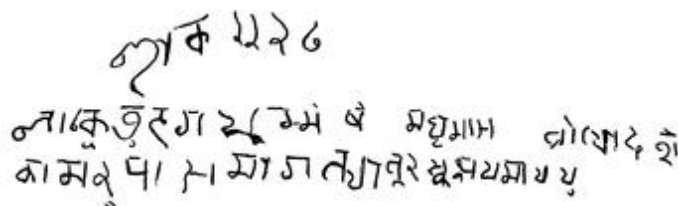 শাক ১১২৭
শাকে তুরগযুগ্মেশে মধুমাস ত্রয়োদশে
কামরূপং সমাগত্য তুরষ্কাঃ ক্ষয়মাযযুঃ